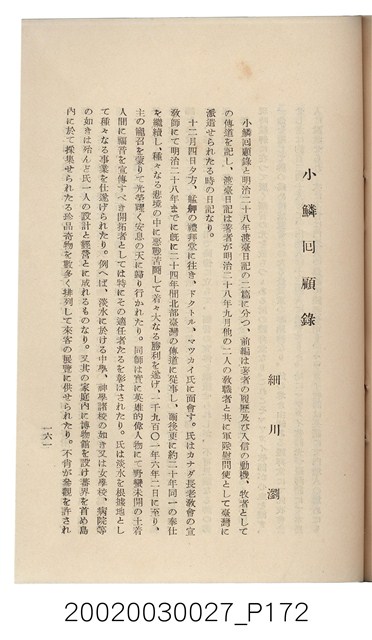 小鱗回顧錄
細川瀏
小鱗回顧錄と明治二十八年渡臺日記の二篇に分つ、前編は著者の履歷及び入信の動機、牧者として
の傳道を記し、渡臺日記は著者が明治二十八年九月他の二人の敎職者と共に軍隊慰問使として臺灣に
派遣せられたる時の日記なり。
十二月四日夕方、艋舺の禮拜堂に往き、ドクトル、マツカイ氏に面會す。氏はカナダ長老敎會の宣
敎師にて明治二十八年までに旣に二十四年間北部臺灣の傳道に從事し、爾後更に約二十年同一の奉仕
を繼續し、種々なる悲境の中に惡戰苦鬪して着々大なる勝利を遂げ、一千九百〇一年六年二日に至り、
主の寵召を蒙りて光榮輝く安息の天に歸り行かれたり。同師は實に英雄的偉人物にて野蠻未開の土着
人間に福音を宣傳すべき開拓者としては特にその適任者たるを彰はされたり。氏は淡水を根據地とし
て種々なる事業を仕遂げられたり。例へば、淡水に於ける中學、神學諸校の如き又は女學校、病院等
の如きは殆んど氏一人の設計と經營とに成れるものなり。又其の家庭內に博物館を設け蕃界を首め島
內に於て採集せられたる珍品奇物を數多く排列して來客の展覽に供せられたり。不肖が參觀を許され
一六一
20020030027_P172